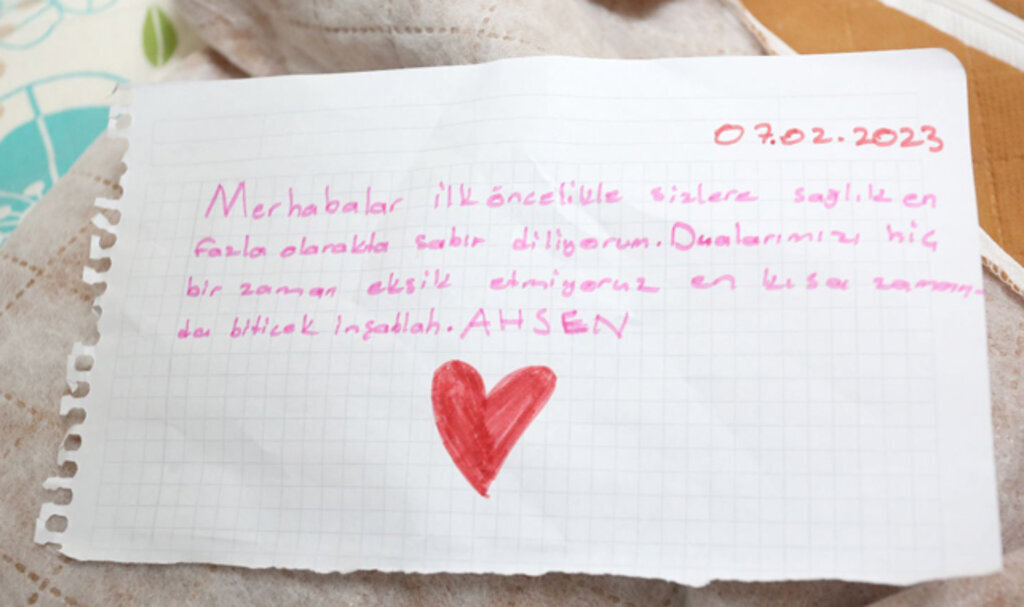 07.02.2023
Merhabalar ilk öncelikle sizlere sağlık en
fazla olarakta sabır diliyorum. Dualarımızı hiç
bir zaman eksik etmiyoruz en kısa zaman-
da biticek inşallah. AHSEN